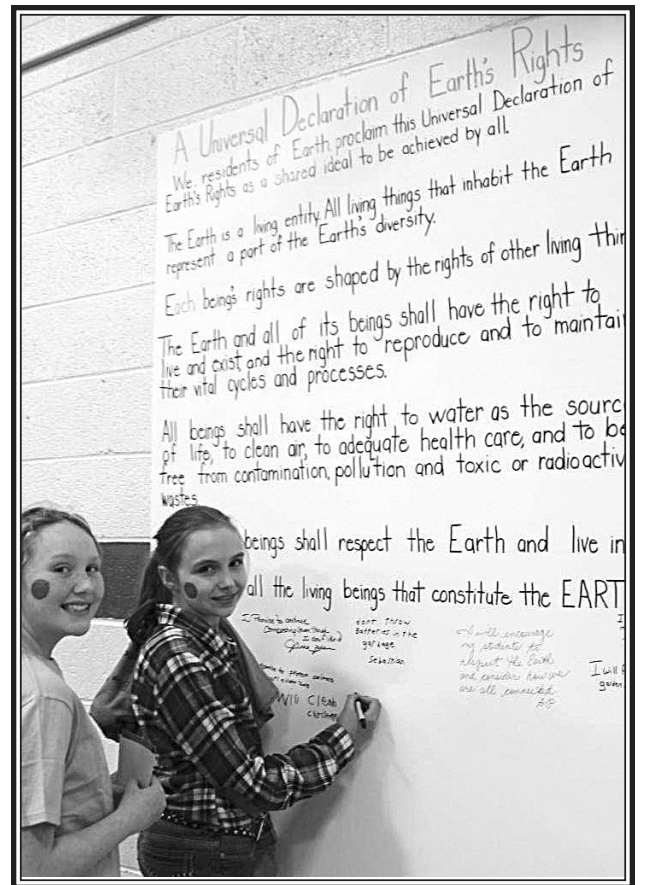 A Universal Declaration of Earth's Rights
We, residents of Earth, proclaim this Universal Declaration of
Earth's Rights as a shared ideal to be achieved by all.
The Earth is a living entity. All living things that inhabit the Earth
represent a part of the Earth's diversity.
Each being's rights are shaped by the rights of other living thin
The Earth and all of its beings shall have the right to
live and exist and the right to reproduce and to maintai
their vital cycles and processes.
All beings shall have the right to water as the sourc
of life, to clean air, to adequate health care, and to be
free from contamination, pollution and toxic or radioactiv
wastes.
beings shall respect the Earth and live in
all the living beings that constitute the EART
I Promise to continue
dont throw
batteries in the
garbage
Sebastian
I will encourage
my students to
respect the Earth
and consider how we
are all connected
Will Clean
I will
garden